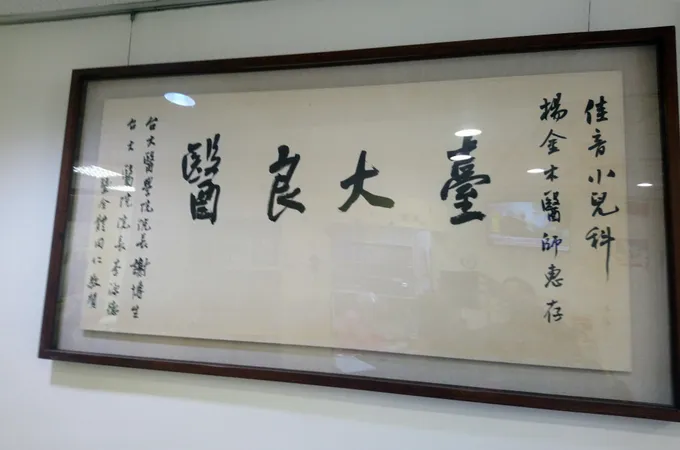 佳音小兒科
楊金木醫師惠存
臺大良醫
台大醫學院院長謝博生
台大醫院院長李源德
暨全體同仁敬賀